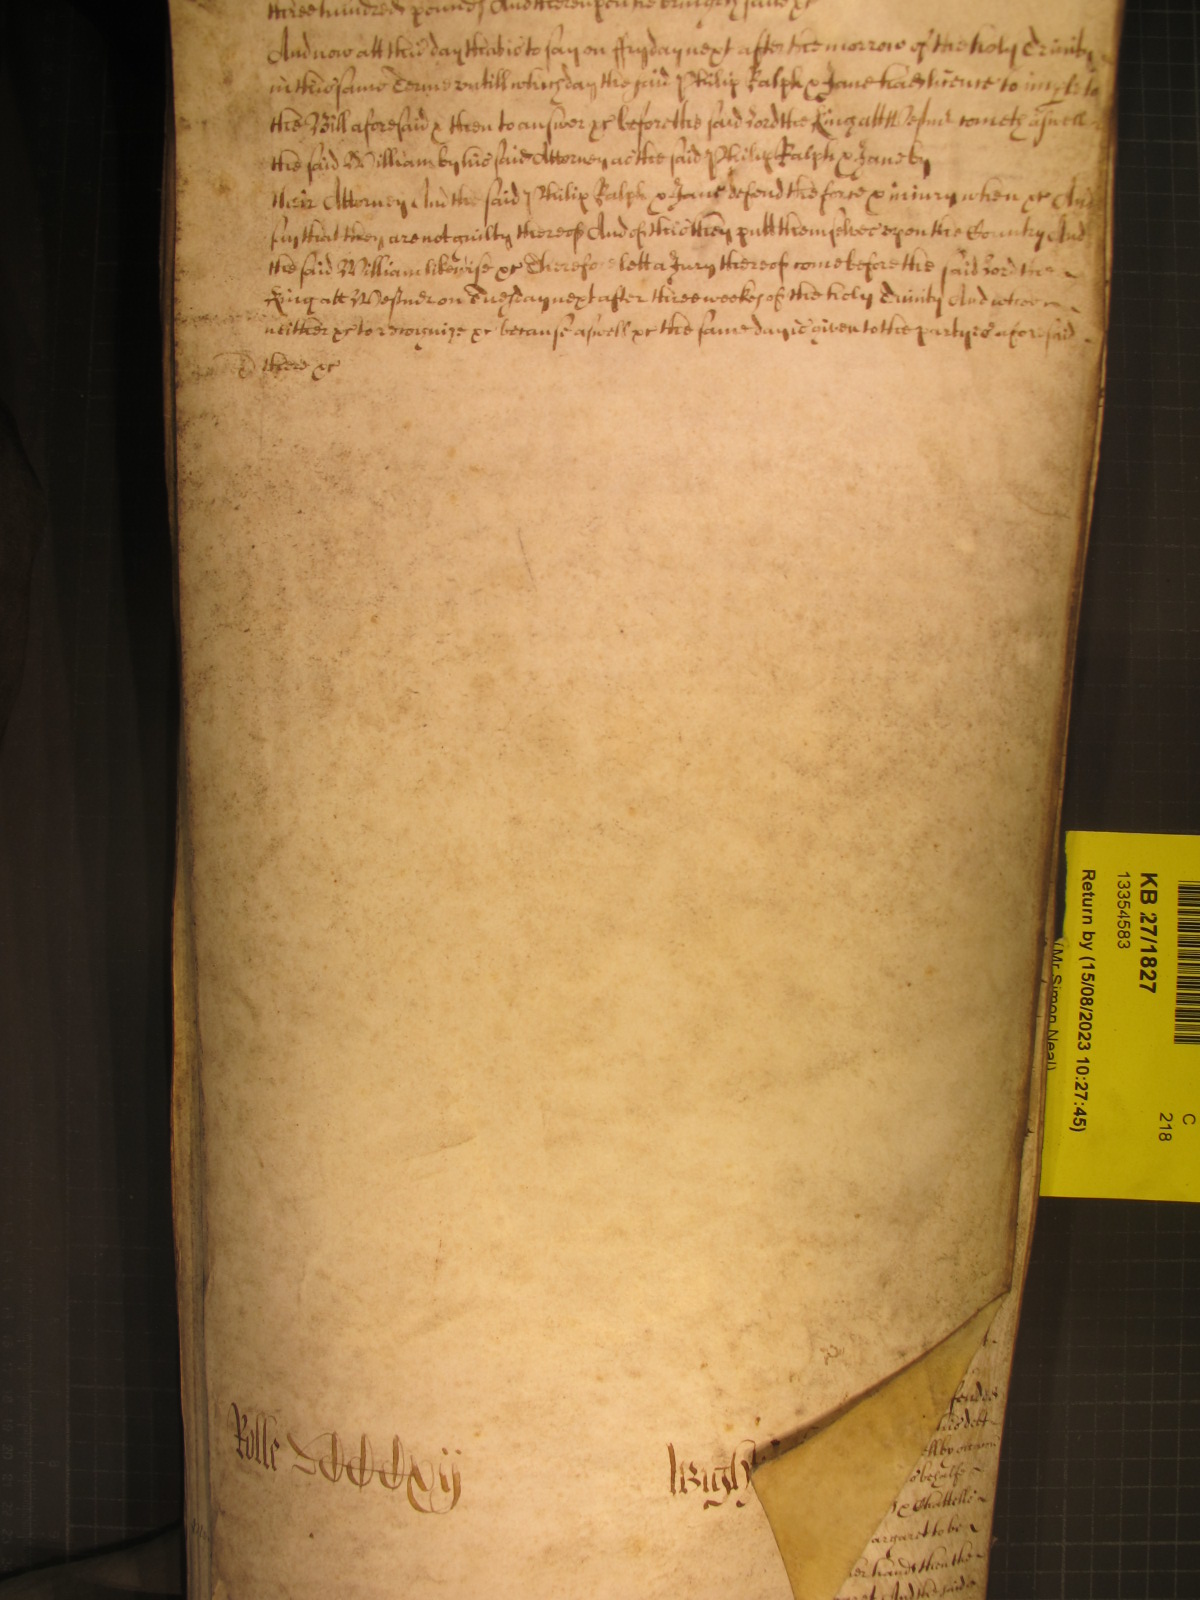 three hundred pounds And thereupon he bringeth suite &c
And now att this day that is to say on ffryday next after the morrow of the holy Trinity
in this same Terme untill which day the said Philip Ralph & Jane had licence to imparle to
the Bill aforesaid & then to answer &c before the said Lord the King att Westmr cometh aswell
the said William by his said Attorney as the said Philip Ralph & Jane by
their Attorney And the said Philip Ralph & Jane defend the force & injury when &c And
say that they are not guilty thereof And of this they putt themselves upon the Country And
the said William likewise &c Therefore lett a Jury thereof come before the said Lord the
King att Westmr on Tuesday next after three weekes of the holy Trinity And who
neither &c to recognize &c because aswell &c the same day is given to the partyes aforesaid
there &c
Rolle
Wigh
KB 27/1827
13354583
Return by (15/08/2023 10:27:45)
(Mr Simon Neal)
C
218
his debt
behalfe
& Chattells
argaret to be
her hands then the
And the said